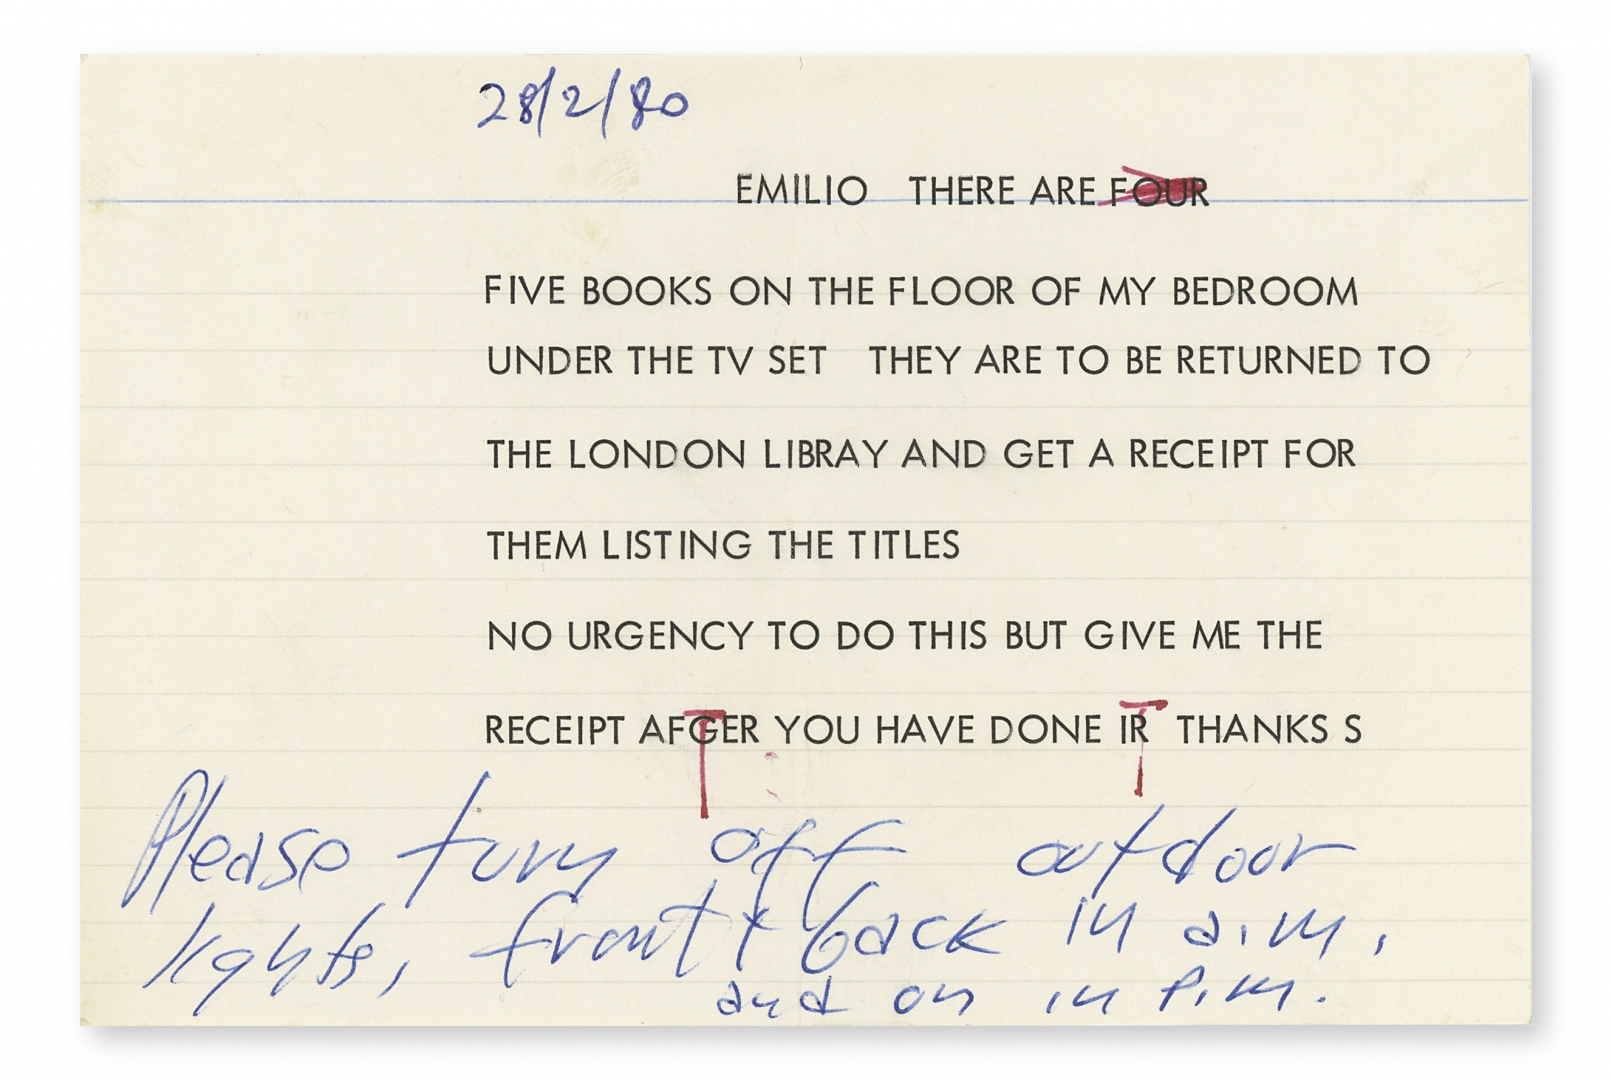 28/2/80
EMILIO THERE ARE FOUR
FIVE BOOKS ON THE FLOOR OF MY BEDROOM
UNDER THE TV SET THEY ARE TO BE RETURNED TO
THE LONDON LIBRAY AND GET A RECEIPT FOR
THEM LISTING THE TITLES
NO URGENCY TO DO THIS BUT GIVE ME THE
RECEIPT AFTER YOU HAVE DONE IT THANKS S
Please turn off outdoor
lights, front & back in a.m.,
and on in p.m.